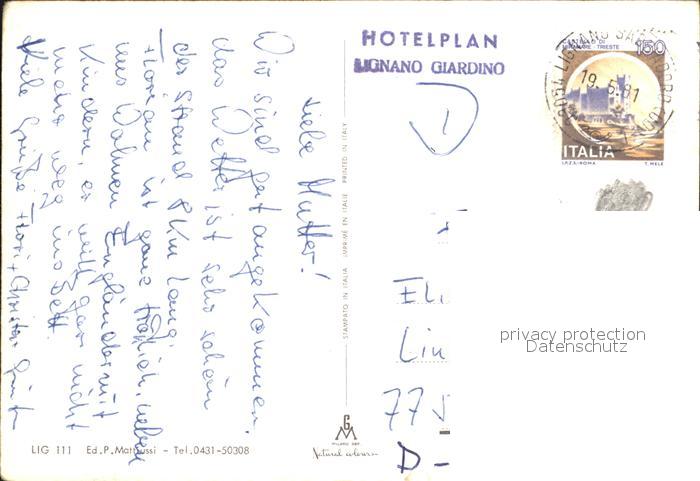 Liebe Mutter!
Wir sind gut angekommen.
das Wetter ist sehr schön
der Strand 8 Km lang.
Florian ist ganz fröhlich, neben
uns Wohnen Engländer mit
Kindern, er will gar nicht
mehr weg ins Bett.
Viele Grüße Flori + Christa
HOTELPLAN
LIGNANO GIARDINO
D
CASTELLO DI
MIRAMARE - TRIESTE
150
19.5.81
ITALIA
I.P.Z.S.-ROMA
T. MELE
STAMPATO IN ITALIA IMPRIMÉ EN ITALIE PRINTED IN ITALY
Eli
Lin
775
D-
privacy protection
Datenschutz
LIG 111 Ed.P. Mattiussi - Tel.0431-50308
GM
MILANO DEP.
Natural colour